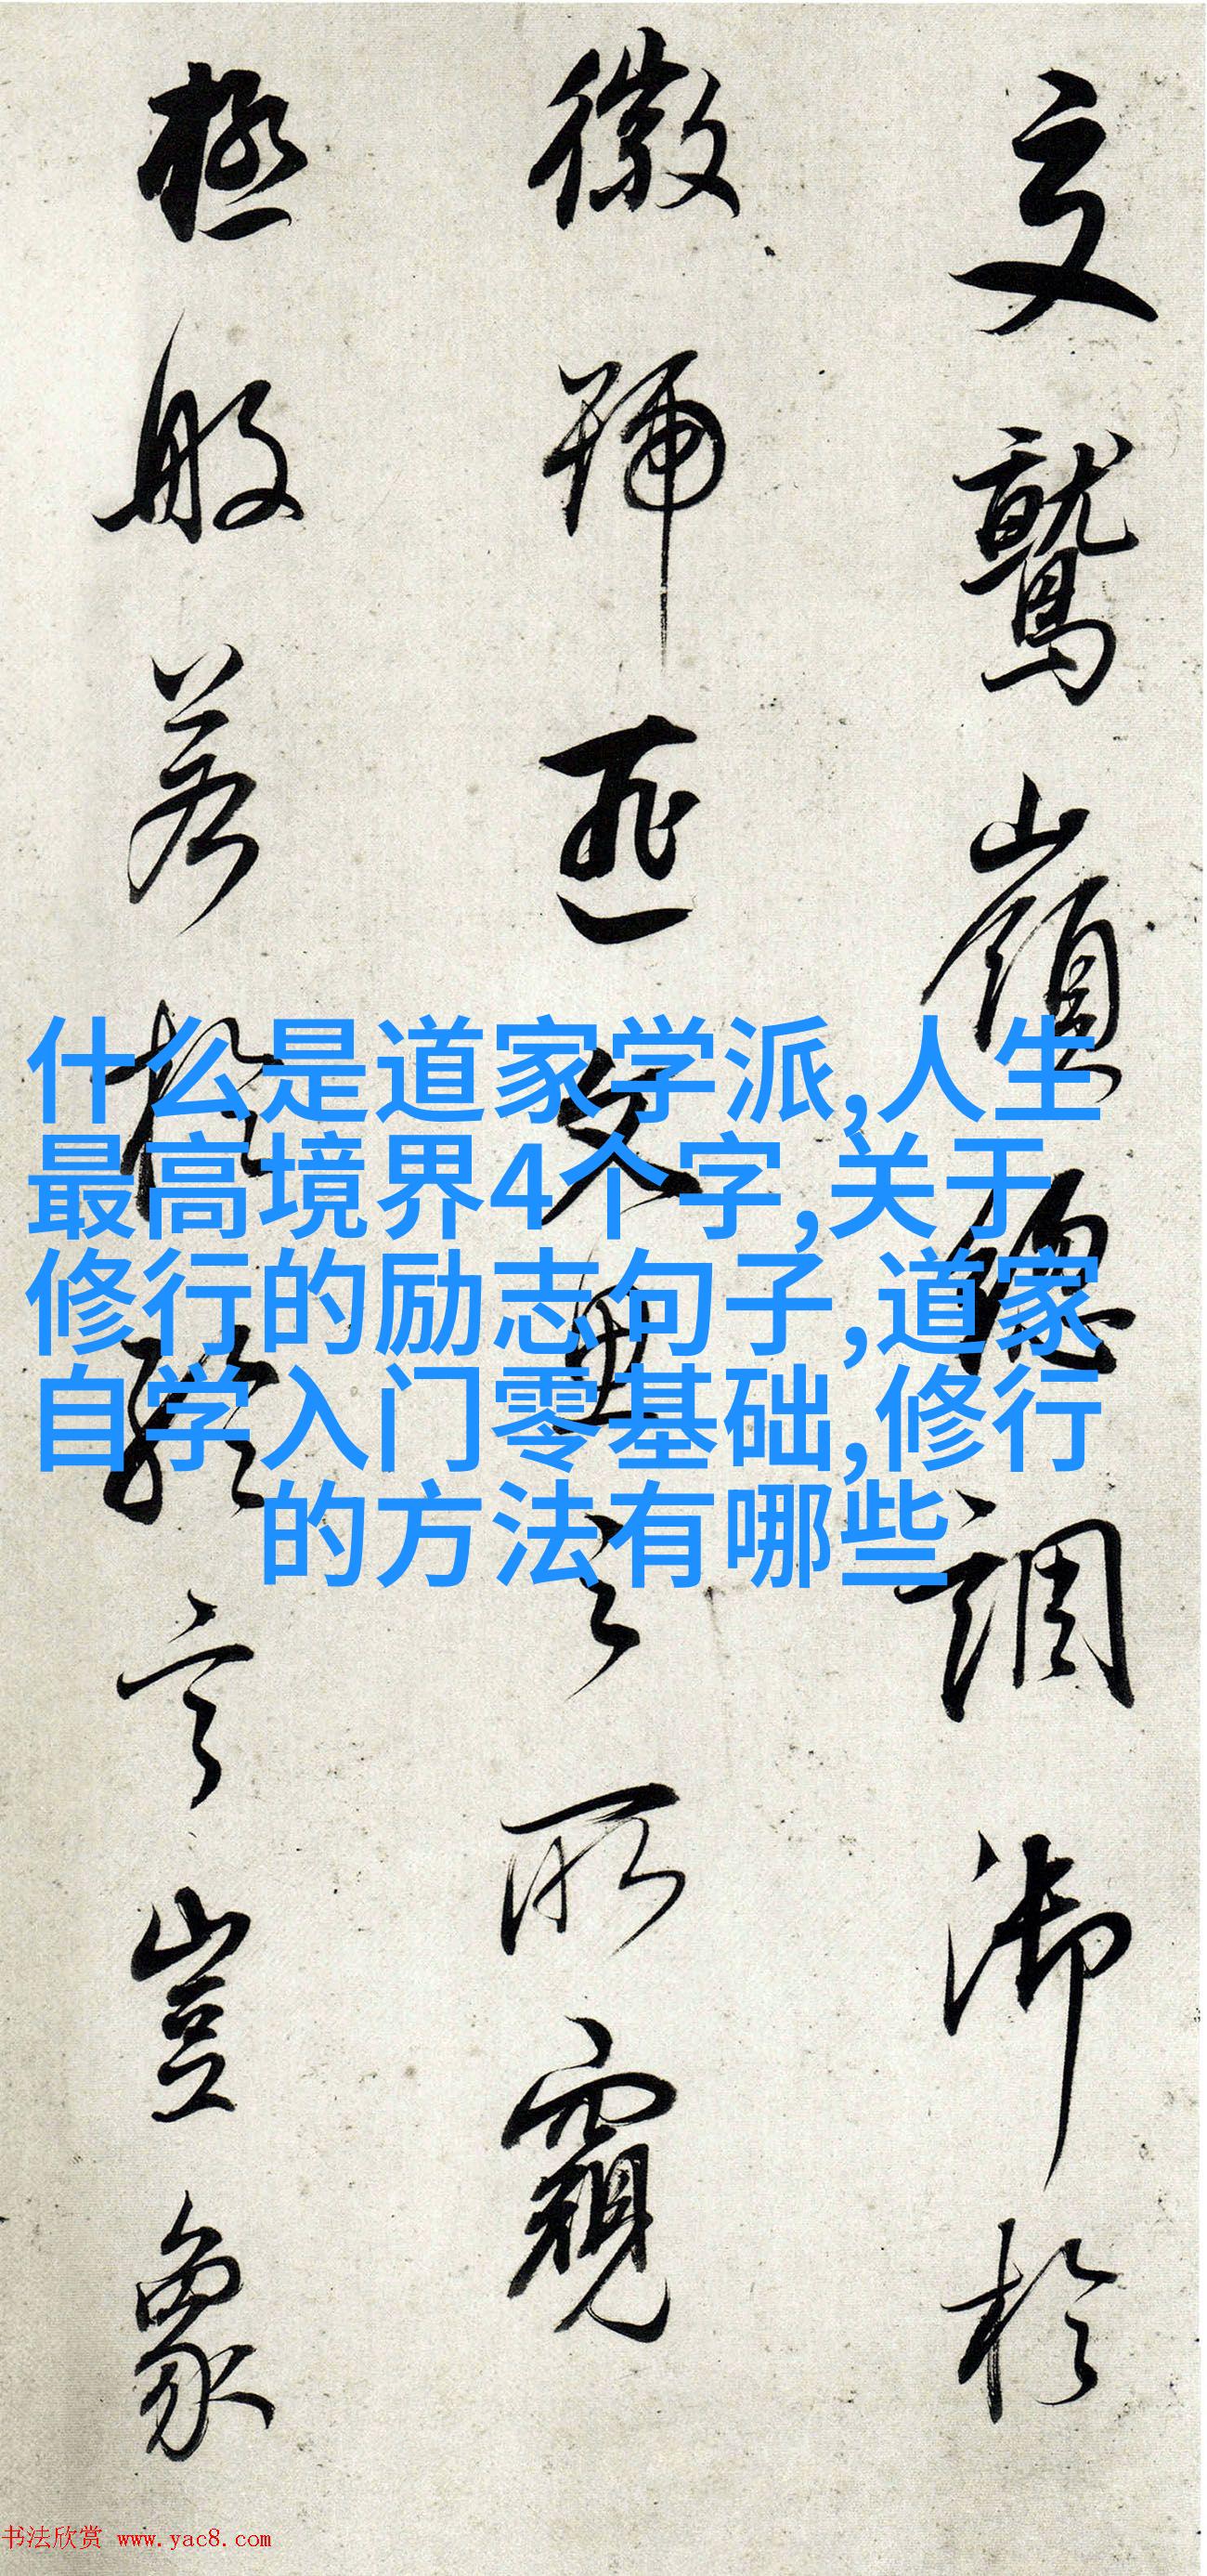 鷲嶺總調御於
徽號匪之所窺
極般若言豈象
什么是道家学派,人生
最高境界4个字,关于
修行的励志句子,道家
自学入门零基础,修行
的方法有哪些
书法欣赏 www.yac8.com